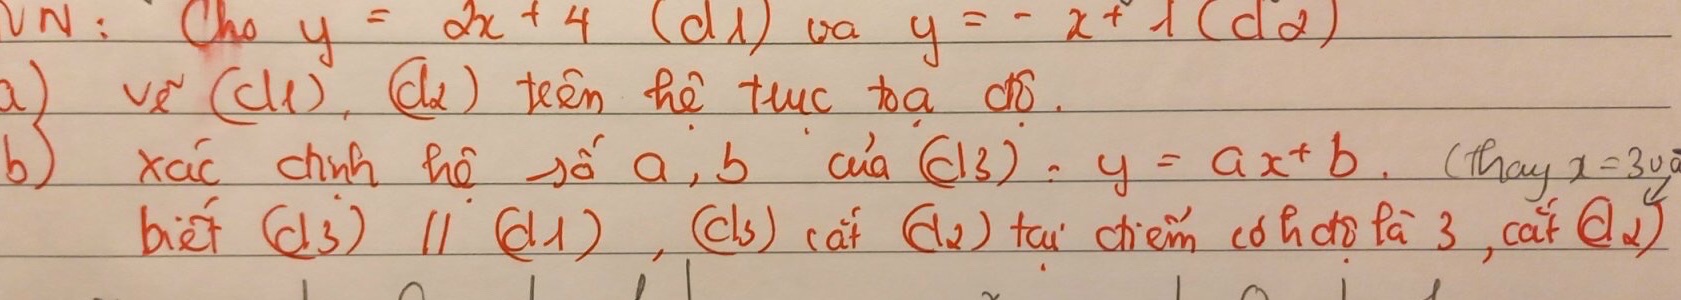 VN: Cho y = 2x + 4 (d1) và y = - x + 1 (d2)
a) vẽ (d1), (d2) trên hệ trục tọa độ.
b) xác định hệ số a, b của (d3): y = ax + b. (thay x = 3 và
biết (d3) // (d1), (d3) cắt (d2) tại điểm có h độ là 3, cắt (d2)